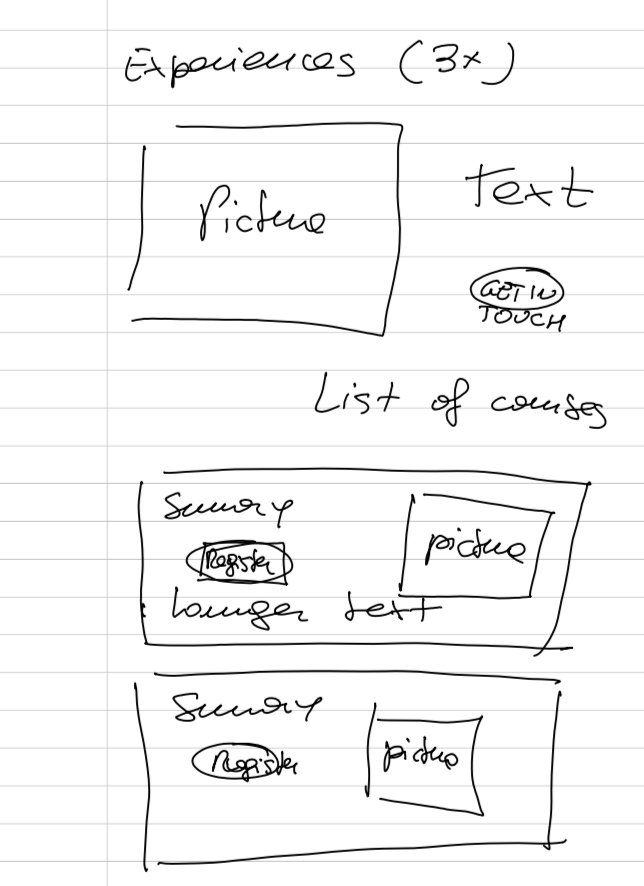 Experiences (3x)
Picture
Text
GET IN
TOUCH
List of courses
Sumary
Register
picture
Lounger text
Sumary
Register
picture